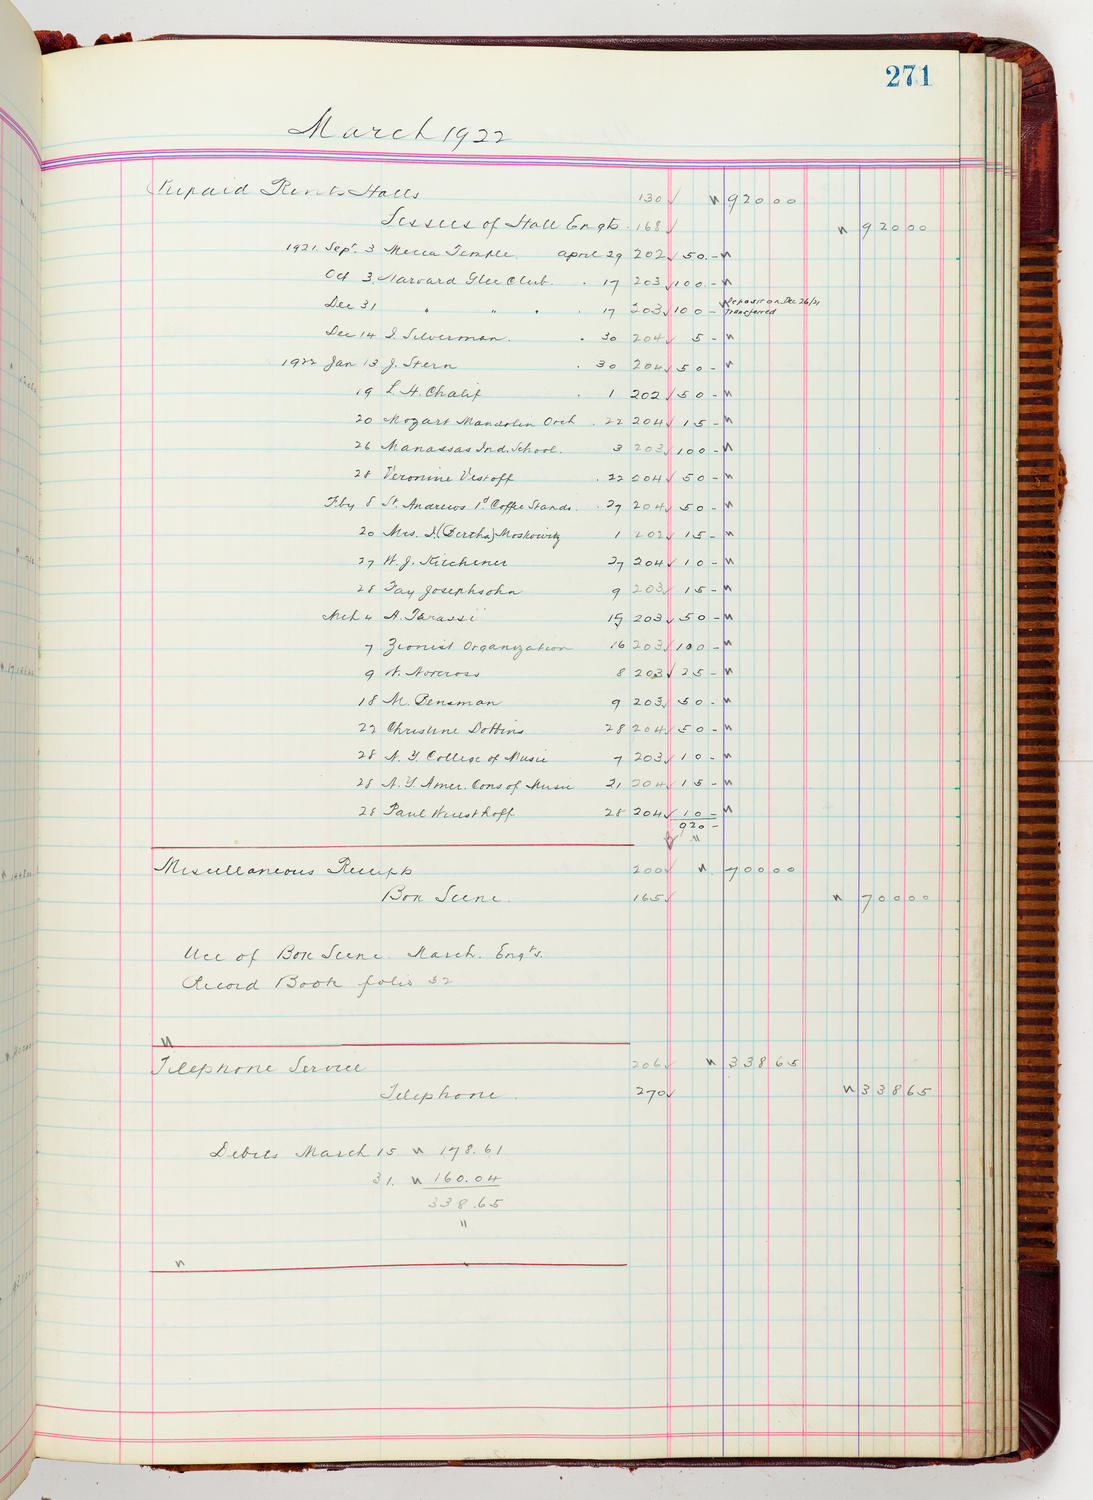 271
March 1922
Prepaid Rents Halls 130 920 00
Lessees of Hall Engts. 168 920 00
1921. Sept. 3 Mecca Temple. April 29 202 50.-
Oct 3 Harvard Glee Club. . 17 203 100 -
Dec 31 " " " . 17 203 100 - Deposit on Dec 26/21
transferred
Dec 14 I. Silverman. . 30 204 5 -
1922 Jan 13 J. Stern . 30 204 50 -
19 L. H. Chalif . 1 202 50 -
20 Mozart Mandolin Orch . 22 204 15 -
26 Manassas Ind. School. 3 203 100 -
28 Veronine Vestoff . 22 204 50 -
Feby 8 St. Andrews 1d Coffee Stands. . 27 204 50 -
20 Mrs. I. (Bertha) Moskowitz 1 202 15 -
27 W. J. Kirchener 27 204 10 -
28 Fay Josephsohn 9 203 15 -
Mch 4 A. Tarassi 15 203 50 -
7 Zionist Organization 16 203 100 -
9 N. Norcross 8 203 25 -
18 M. Bensman 9 203 50 -
22 Christine Dobbins 28 204 50 -
28 N. Y. College of Music 7 203 10 -
28 N. Y. Amer. Cons of Music 21 204 15 -
28 Paul Wiesthoff 28 204 10 -
920 -
"
Miscellaneous Receipts 200 700 00
Box Scene. 165 700 00
Use of Box Scene. March. Engts.
Record Book folio 32
Telephone Service 206 338 65
Telephone. 270 338 65
Debits March 15 178.61
31. 160.04
338.65
"